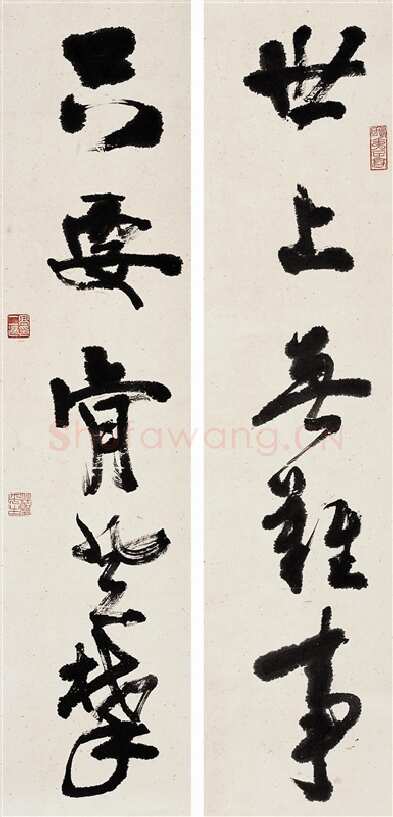 世上無難事
只要肯登攀
Shufawang.CN